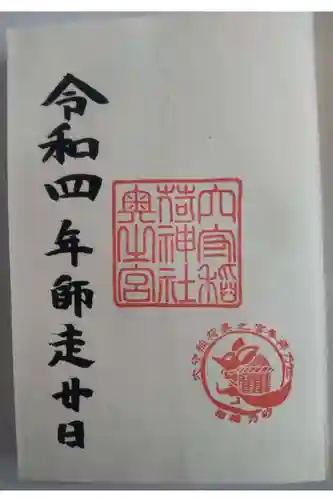 穴守稲
荷神社
奥之宮
令和四年師走廿日